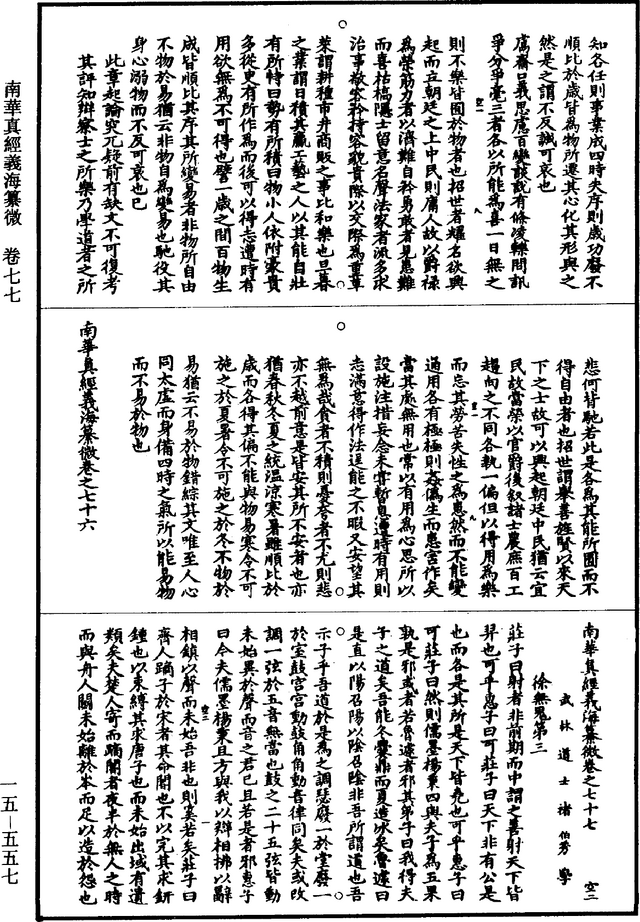 南華真經義海纂微 卷七七
一五—五五七
知各任則事業成四時失序則歲功廢不
順比於歲皆為物所遷其心化其形與之
然是之謂不反誠可哀也
膚齋口義思慮百變談說有條凌轢問訊
爭分爭毫三者各以所能為喜一日無之
則不樂皆囿於物者也招世者耀名欲與
起而立朝廷之上中民則庸人故以爵祿
為榮筋力者以濟難自矜勇敢者見患難
而喜枯槁隱士留意名聲法家者流多求
治事敬容矜持容貌貴際以交際為重草
萊謂耕種市井商販之事比和樂也旦暮
之業謂日積其贏工藝之人以其能自壯
有所恃曰勢有所積曰物小人依附豪貴
多從更有所作為而後可以得志遭時有
用欲無為不可得也譬一歲之間百物生
成皆順比其序其所變易者非物所自由
不物於易猶云非物自為變易也馳役其
身心溺物而不反可哀也已
此章起論突兀疑前有缺文不可復考
其評知辯察士之所樂乃學道者之所
悲何背馳若此是各為其能所囿而不
得自由者也招世謂舉善旌賢以來天
下之士故可以興起朝廷中民猶云宜
民故當榮以官爵後叙諸士農無百工
趨向之不同各執一偏但以得用為樂
而忘其勞苦失性之為患然而不能變
通用各有極極則姦偽生而患害作矣
當其處無用也常以有用為心思所以
設施注措妄念未嘗暫息遭時有用則
志滿意得作法逞能之不暇又安望其
無為哉貪者不積則憂夸者不尤則悲
亦不越前意是皆安其所不安者也亦
猶春秋冬夏之統溫涼寒暑雖順比於
歲而各得其偏不能與物易寒令不可
施之於夏暑令不可施之於冬不物於
易猶云不易於物錯綜其文唯至人心
同太虛而身備四時之氣所以能易物
而不易於物也
南華真經義海纂微卷之七十六
南華真經義海纂微卷之七十七 空三
武林道士褚伯秀學
徐無鬼第三
莊子曰射者非前期而中謂之善射天下皆
羿也可乎惠子曰可莊子曰天下非有公是
也而各是其所是天下皆堯也可乎惠子曰
可莊子曰然則儒墨楊秉四與夫子為五果
孰是邪或者若魯遽者邪其弟子曰我得夫
子之道矣吾能冬爨鼎而夏造冰矣魯遽曰
是直以陽召陽以陰召陰非吾所謂道也吾
示子乎吾道於是為之調瑟廢一於堂廢一
於室鼓宮宮動鼓角角動音律同矣夫或改
調一弦於五音無當也鼓之二十五弦皆動
未始異於聲而音之君已且若是者邪惠子
曰今夫儒墨楊秉且方與我以辯相拂以辭
相鎮以聲而未始吾非也則奚若矣莊子曰
齊人蹢子於宋者其命閽也不以完其求鈃
鍾也以束縛其求唐子也而未始出域有遺
類矣夫楚人寄而蹢閽者夜半於無人之時
而與舟人鬬未始離於岑而足以造於怨也